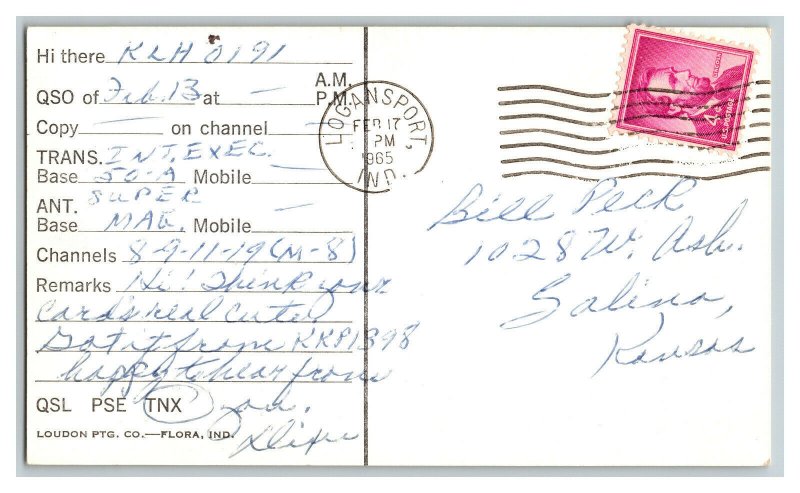 Hi there KLH 0191
QSO of Feb. 13 at — A.M. P.M.
Copy — on channel —
TRANS. INT. EXEC.
Base 50-A Mobile —
SUPER
ANT.
Base MAG. Mobile —
Channels 8-9-11-19 (M-8)
Remarks Hi! Think your
card's real cute.
Got it from KKP1398
happy to hear from
QSL PSE TNX you.
Dixie
LOUDON PTG. CO.—FLORA, IND.
LOGANSPORT, IND.
FEB 17
PM
1965
LINCOLN
4¢
Bill Peck
1028 W. Ash.
Salina,
Kansas